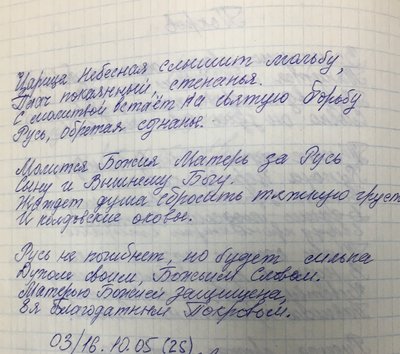 Царица Небесная слышит мольбу,
Плач покаянный, стенанья.
С молитвой встаёт на святую борьбу
Русь, обретая сознанье.
Молится Божия Матерь за Русь
Сыну и Вышнему Богу.
Жаждет душа сбросить тяжкую грусть
И колдовские оковы.
Русь не погибнет, но будет сильна
Духом своим, Божьим Словом.
Матерью Божией защищена,
Её благодатным Покровом.
03/16.10.05 (25)